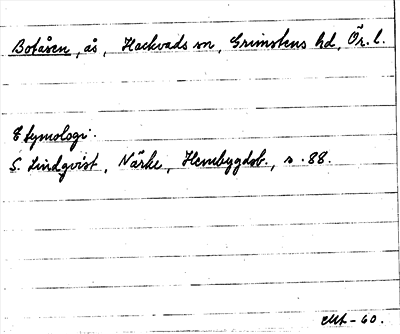 Botåven, ås, Hackvads sn, Grimstens hd, Ör. l.
Etymologi.
S. Lindqvist, Närke, Hembygdsb., s. 88.
-60.